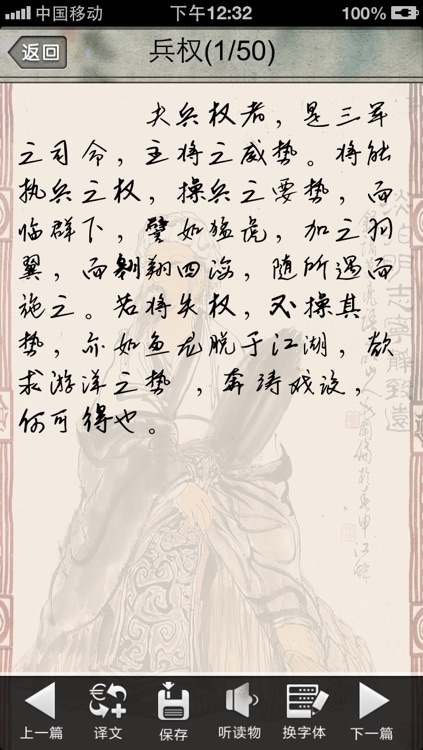 中国移动 下午12:32 100%
返回 兵权(1/50)
夫兵权者，是三军
之司令，主将之威势。将能
执兵之权，操兵之要势，而
临群下，譬如猛虎，加之羽
翼，而翱翔四海，随所遇而
施之。若将失权，不操其
势，亦如鱼龙脱于江湖，欲
求游洋之势，奔涛戏浪，
何可得也。
淡泊明志宁静致远
上一篇 译文 保存 听读物 换字体 下一篇